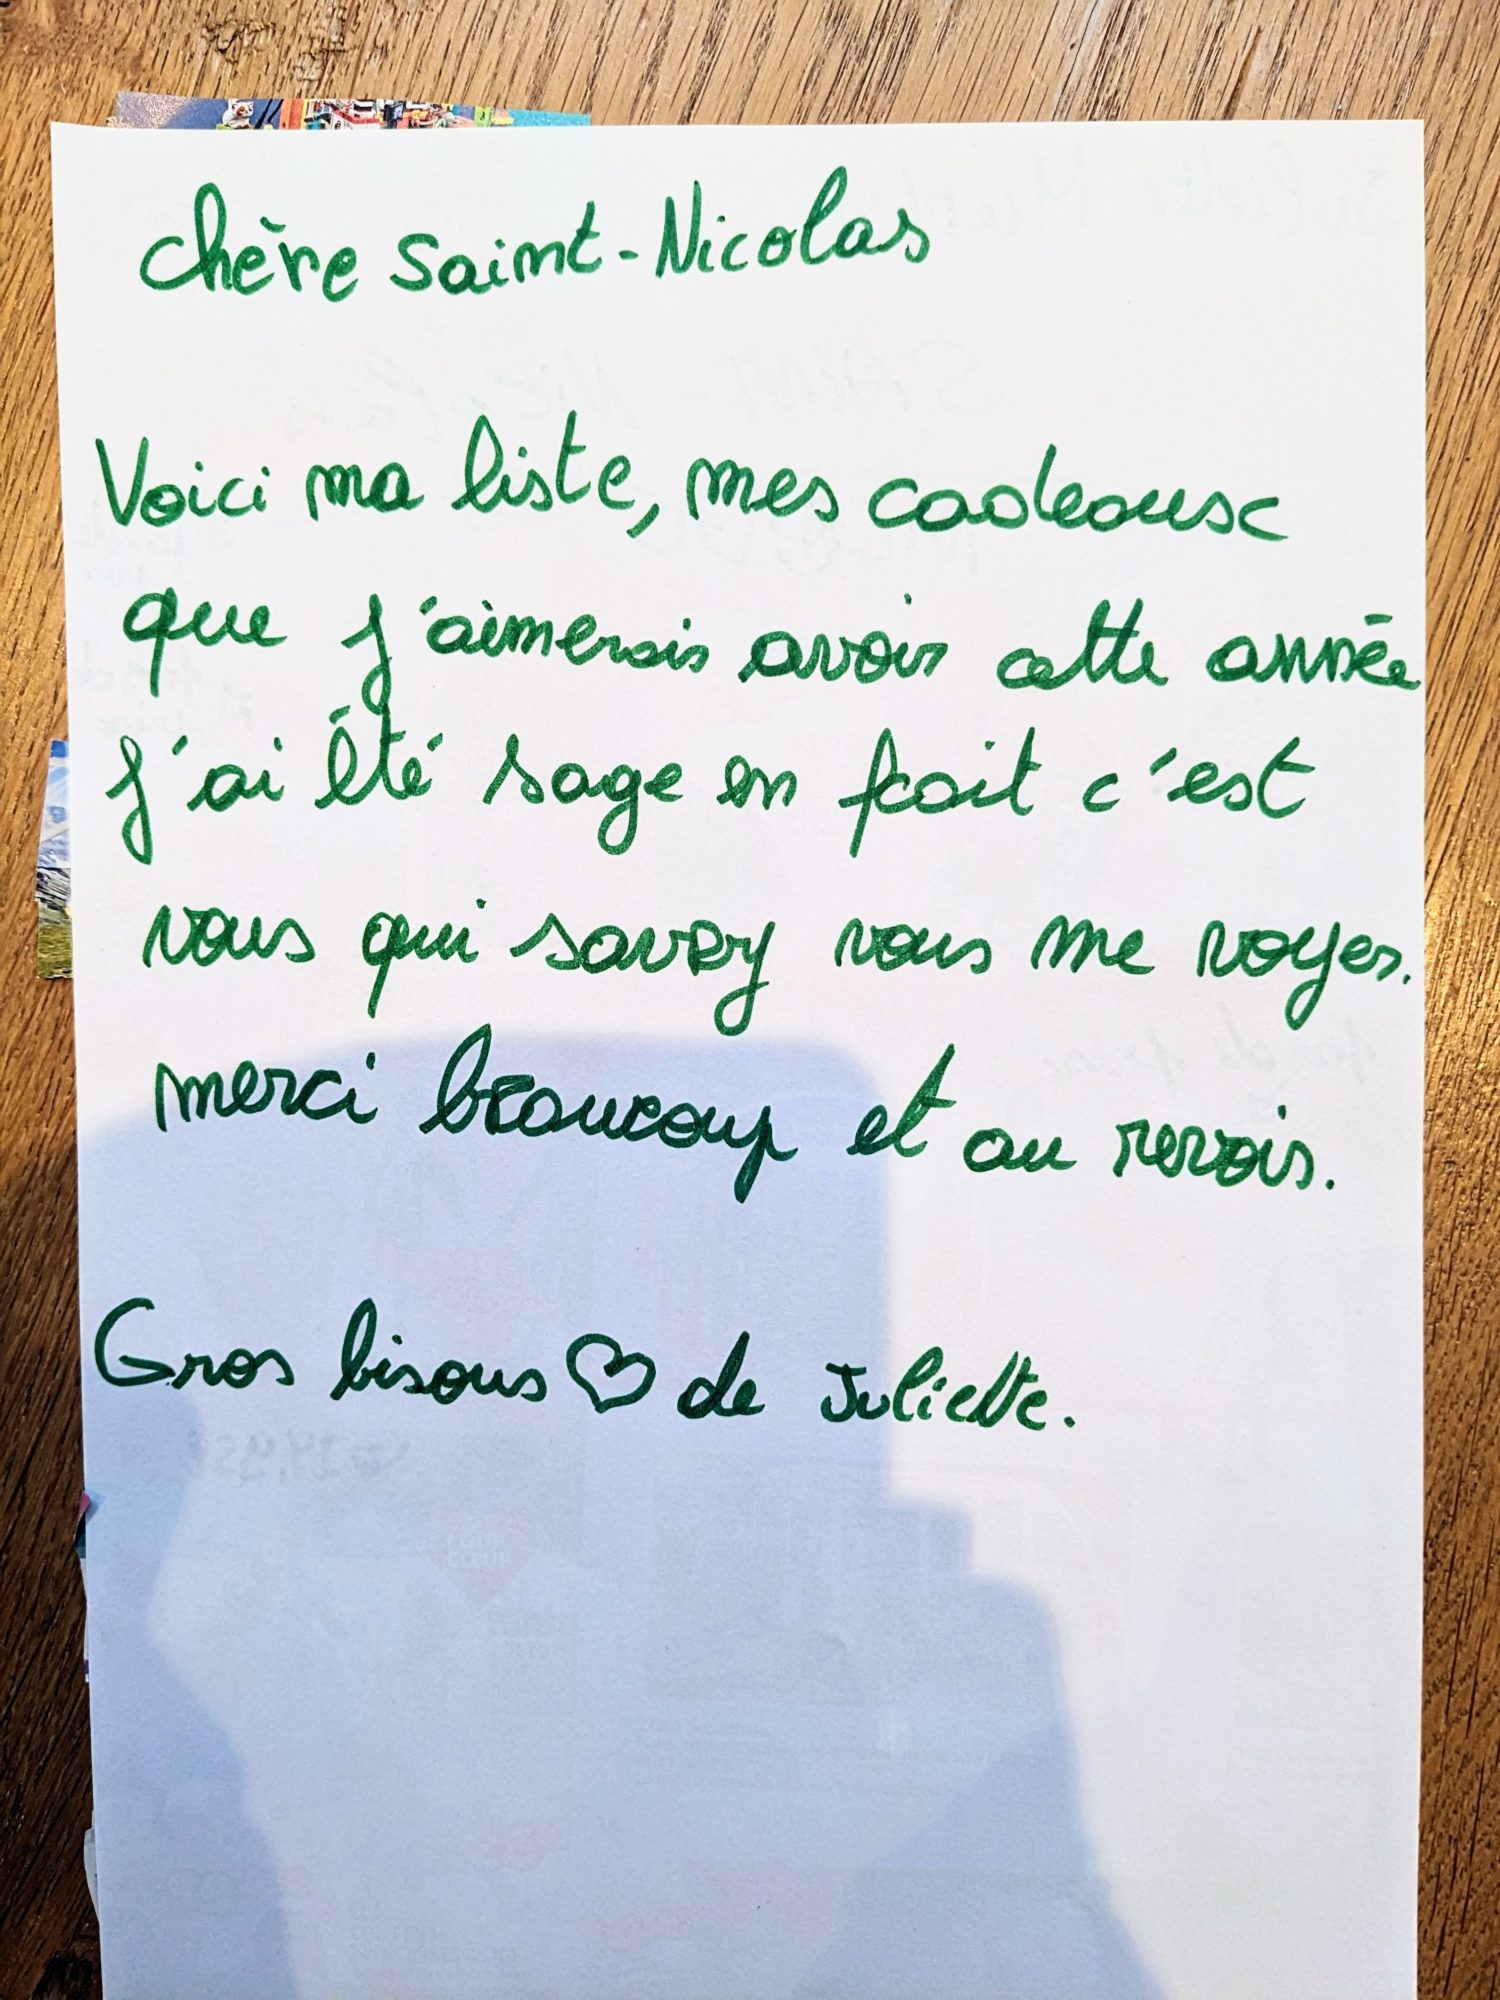 chère Saint-Nicolas
Voici ma liste, mes cadeaux
que j'aimerais avoir cette année
j'ai été sage en fait c'est
vous qui savez vous me voyes.
merci beaucoup et au revois.
Gros bisous ♡ de Juliette.